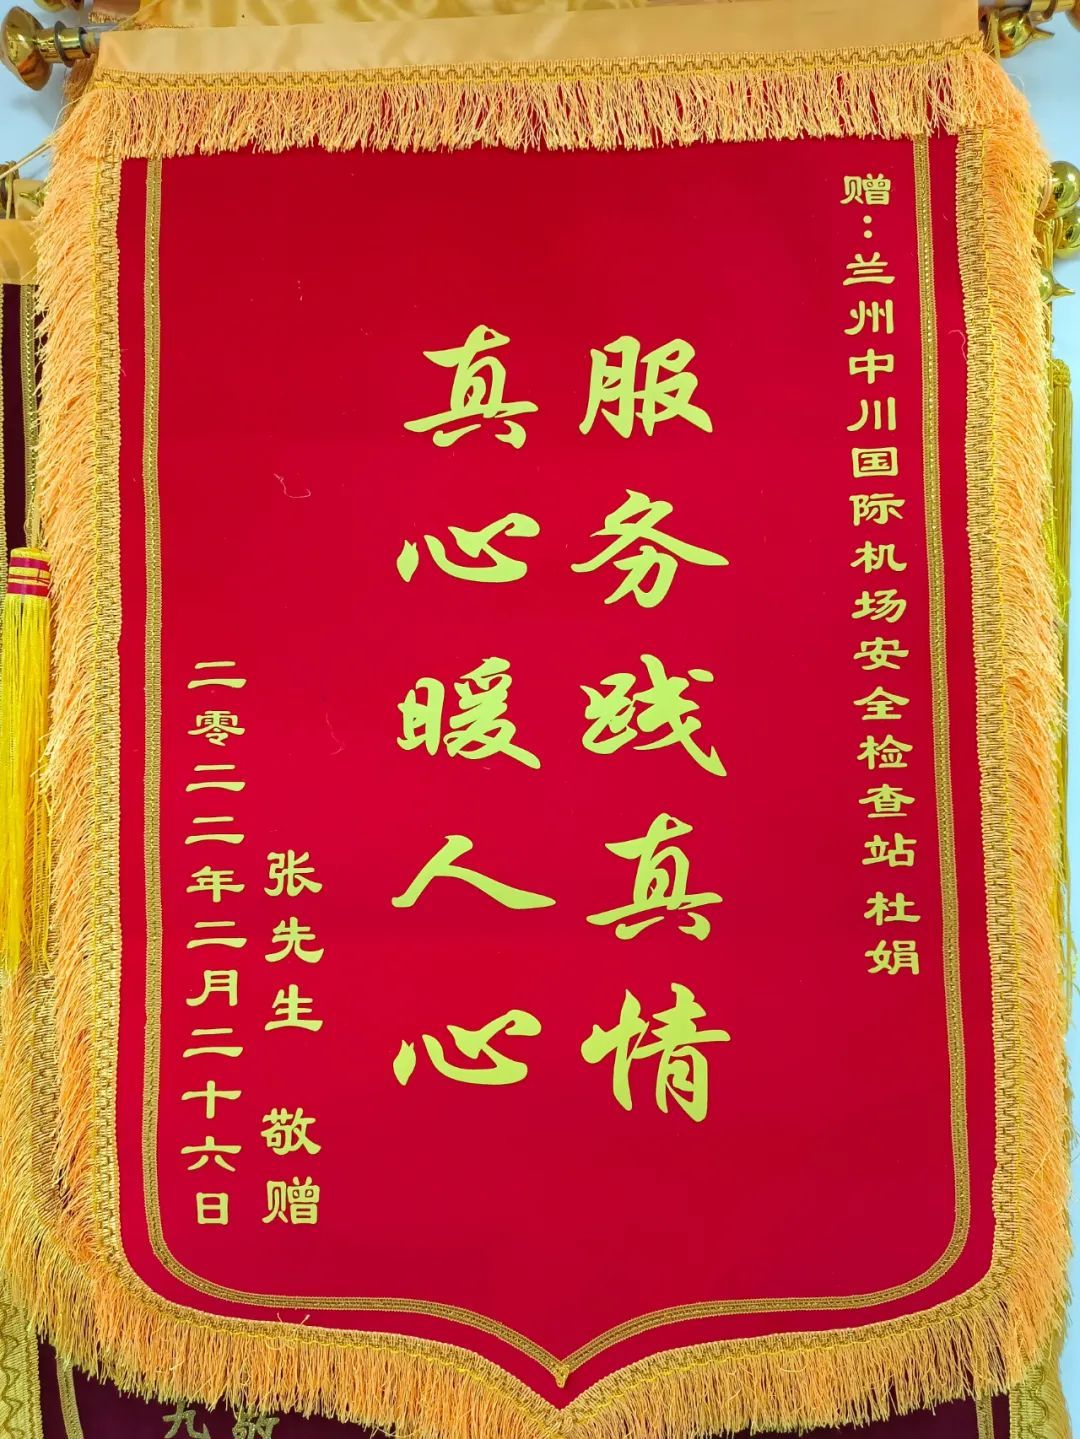 赠:兰州中川国际机场安全检查站 杜娟
服务践真情
真心暖人心
张先生 敬赠
二零二二年二月二十六日
敬
九